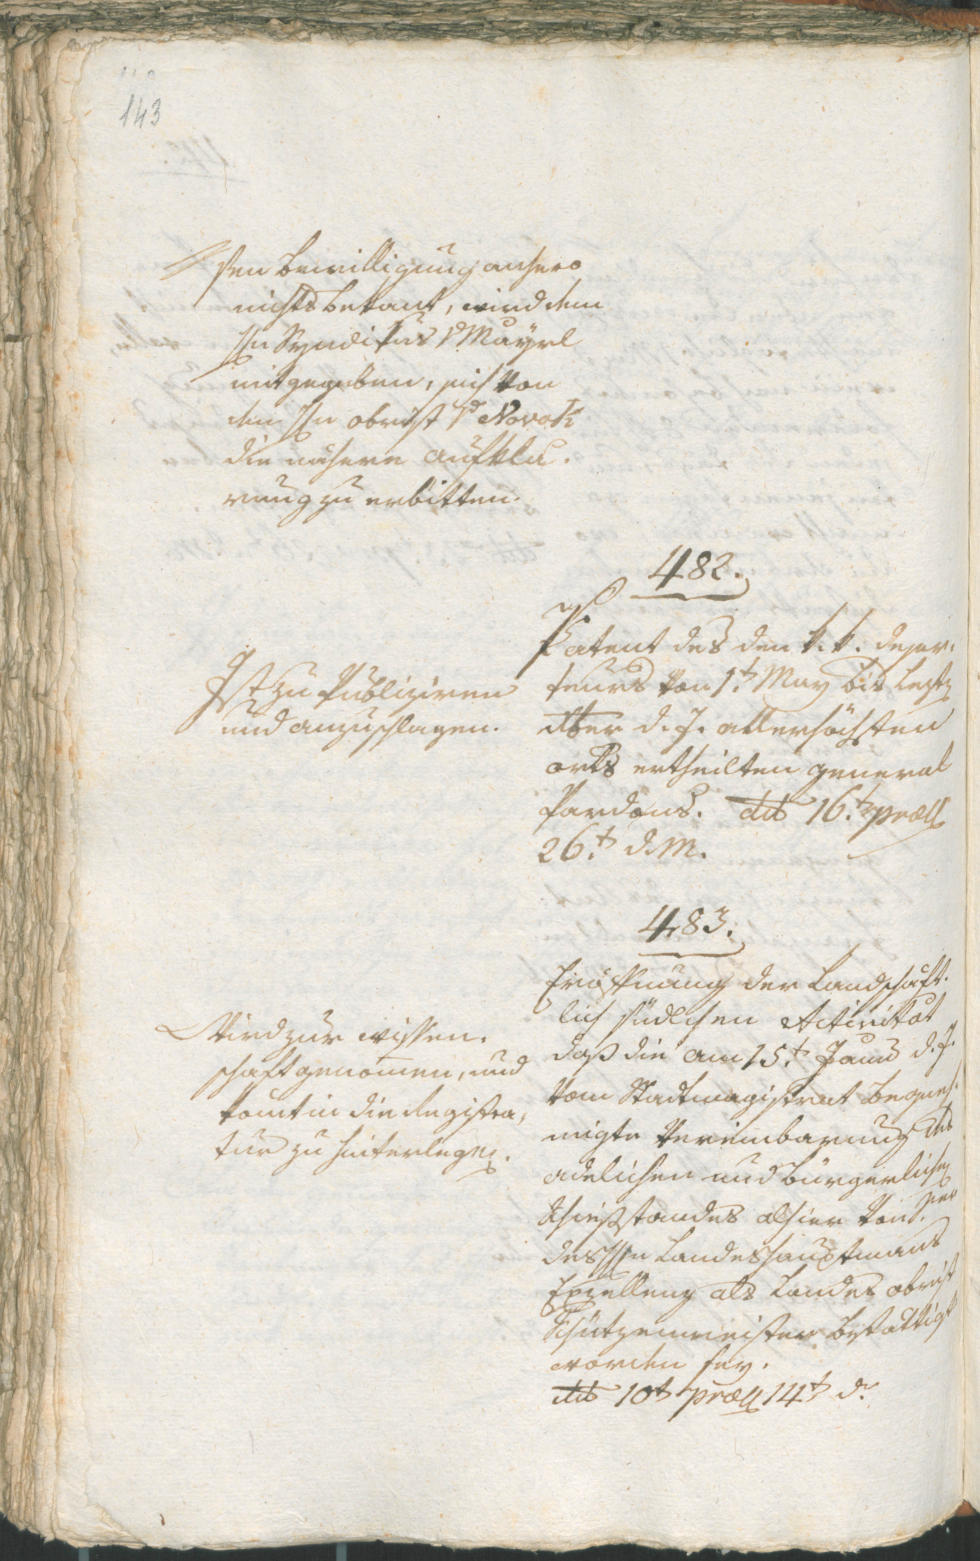 143
sen Bewilligung anhero
nichts bekant, wird dem
Hn Syndikus v Mayrl
mitgegeben, sich von
den Hn obrist v Novak
die nähere Aufklä-
rung zu erbitten.
482.
Patent des den k. k. Deser-
teurs von 1.t May bis lezten
8ber d. J. allerhöchsten
orts ertheilten General
Pardons. ddo 16.t præs
26.t d. M.
Ist zu Publiziren
und anzuschlagen.
483.
Eröffnung der Landschaft-
lich südlichen Activitæt
daß die am 15.t Januar d. J.
vom Stadtmagistrat begneh-
migte Vereinbarung des
adelichen und bürgerlichen
Schiesstandes alhier von Sr
des Hn Landeshauptmans
Exzellenz als Landes obrist
Schützenmeister bestättigt
worden sey.
ddo 10t præs 14t d.
Wird zur wissen-
schaft genomen, und
komt in die Registra-
tur zu hinterlegen.